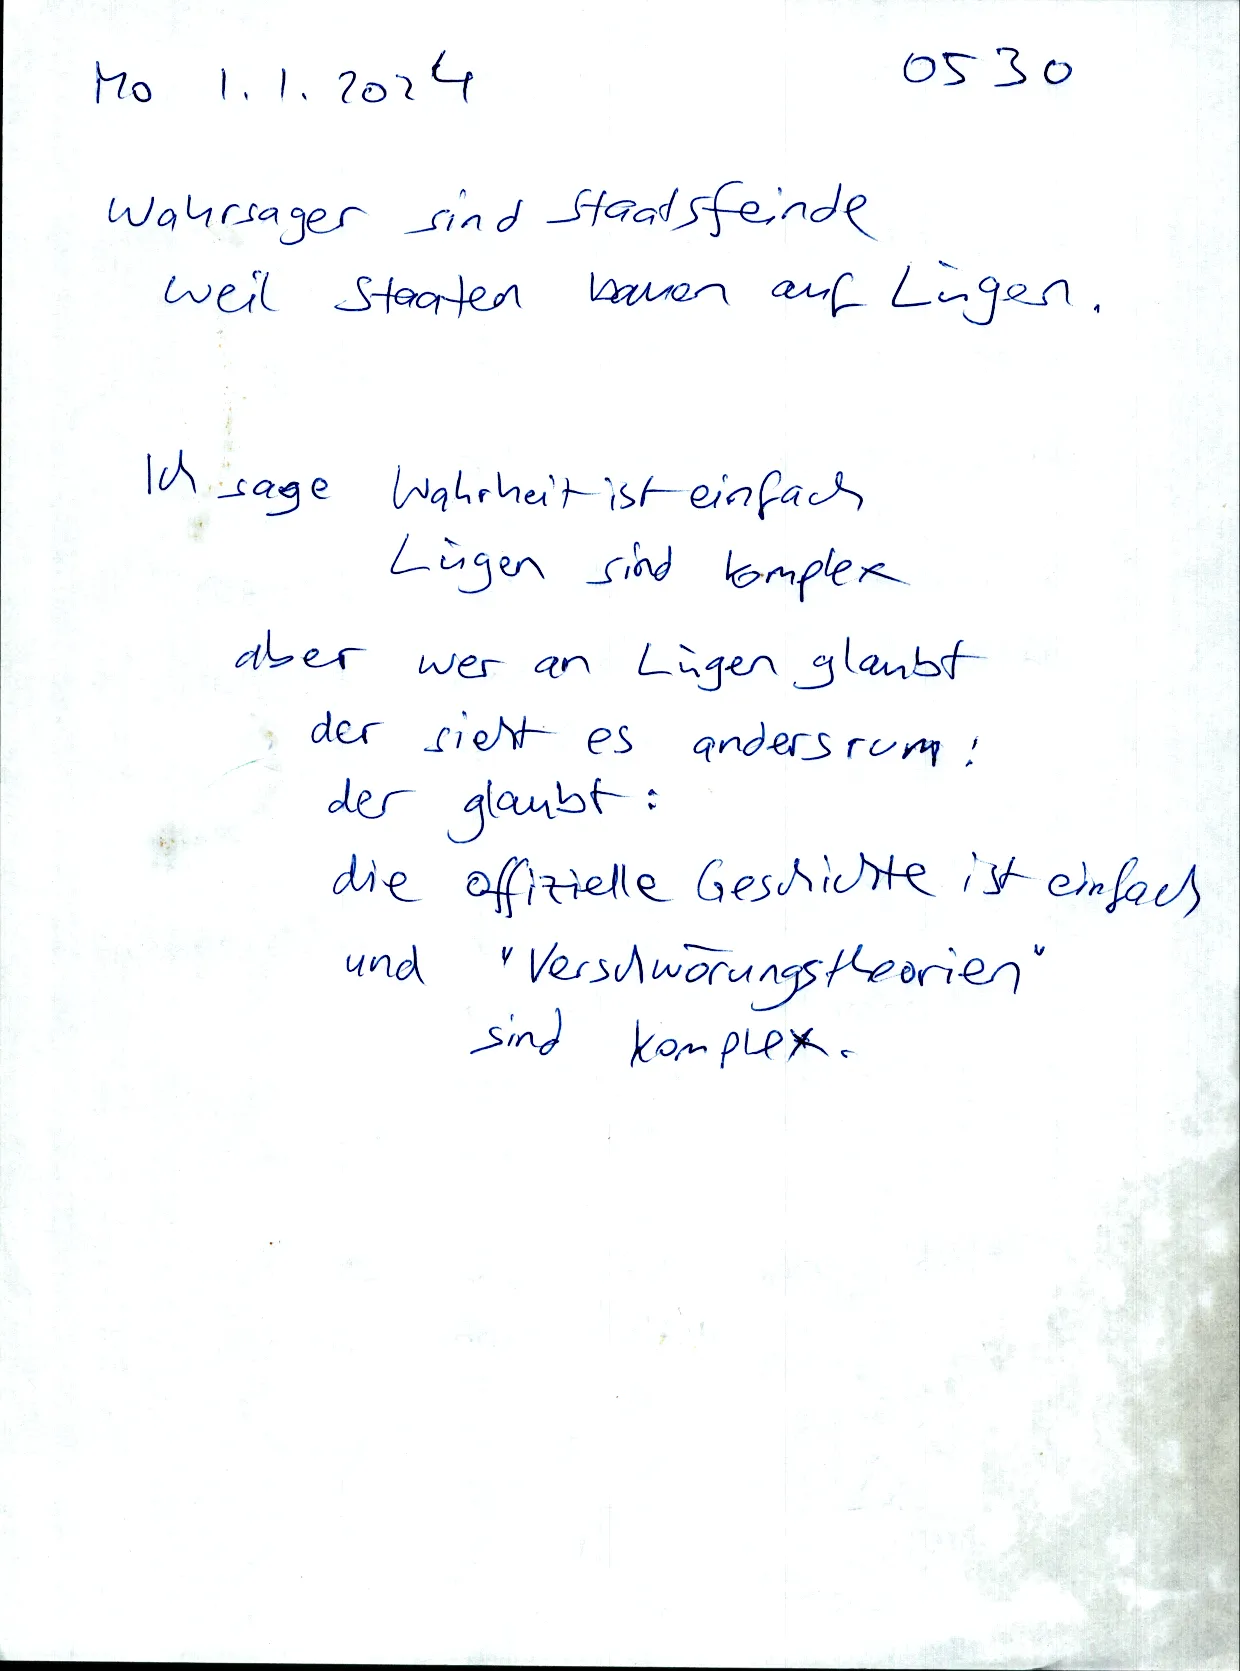 Mo 1.1.2024 0530
Wahrsager sind Staatsfeinde
weil Staaten bauen auf Lügen.
Ich sage Wahrheit ist einfach
Lügen sind komplex
aber wer an Lügen glaubt
der sieht es andersrum:
der glaubt:
die offizielle Geschichte ist einfach
und "Verschwörungstheorien"
sind komplex.